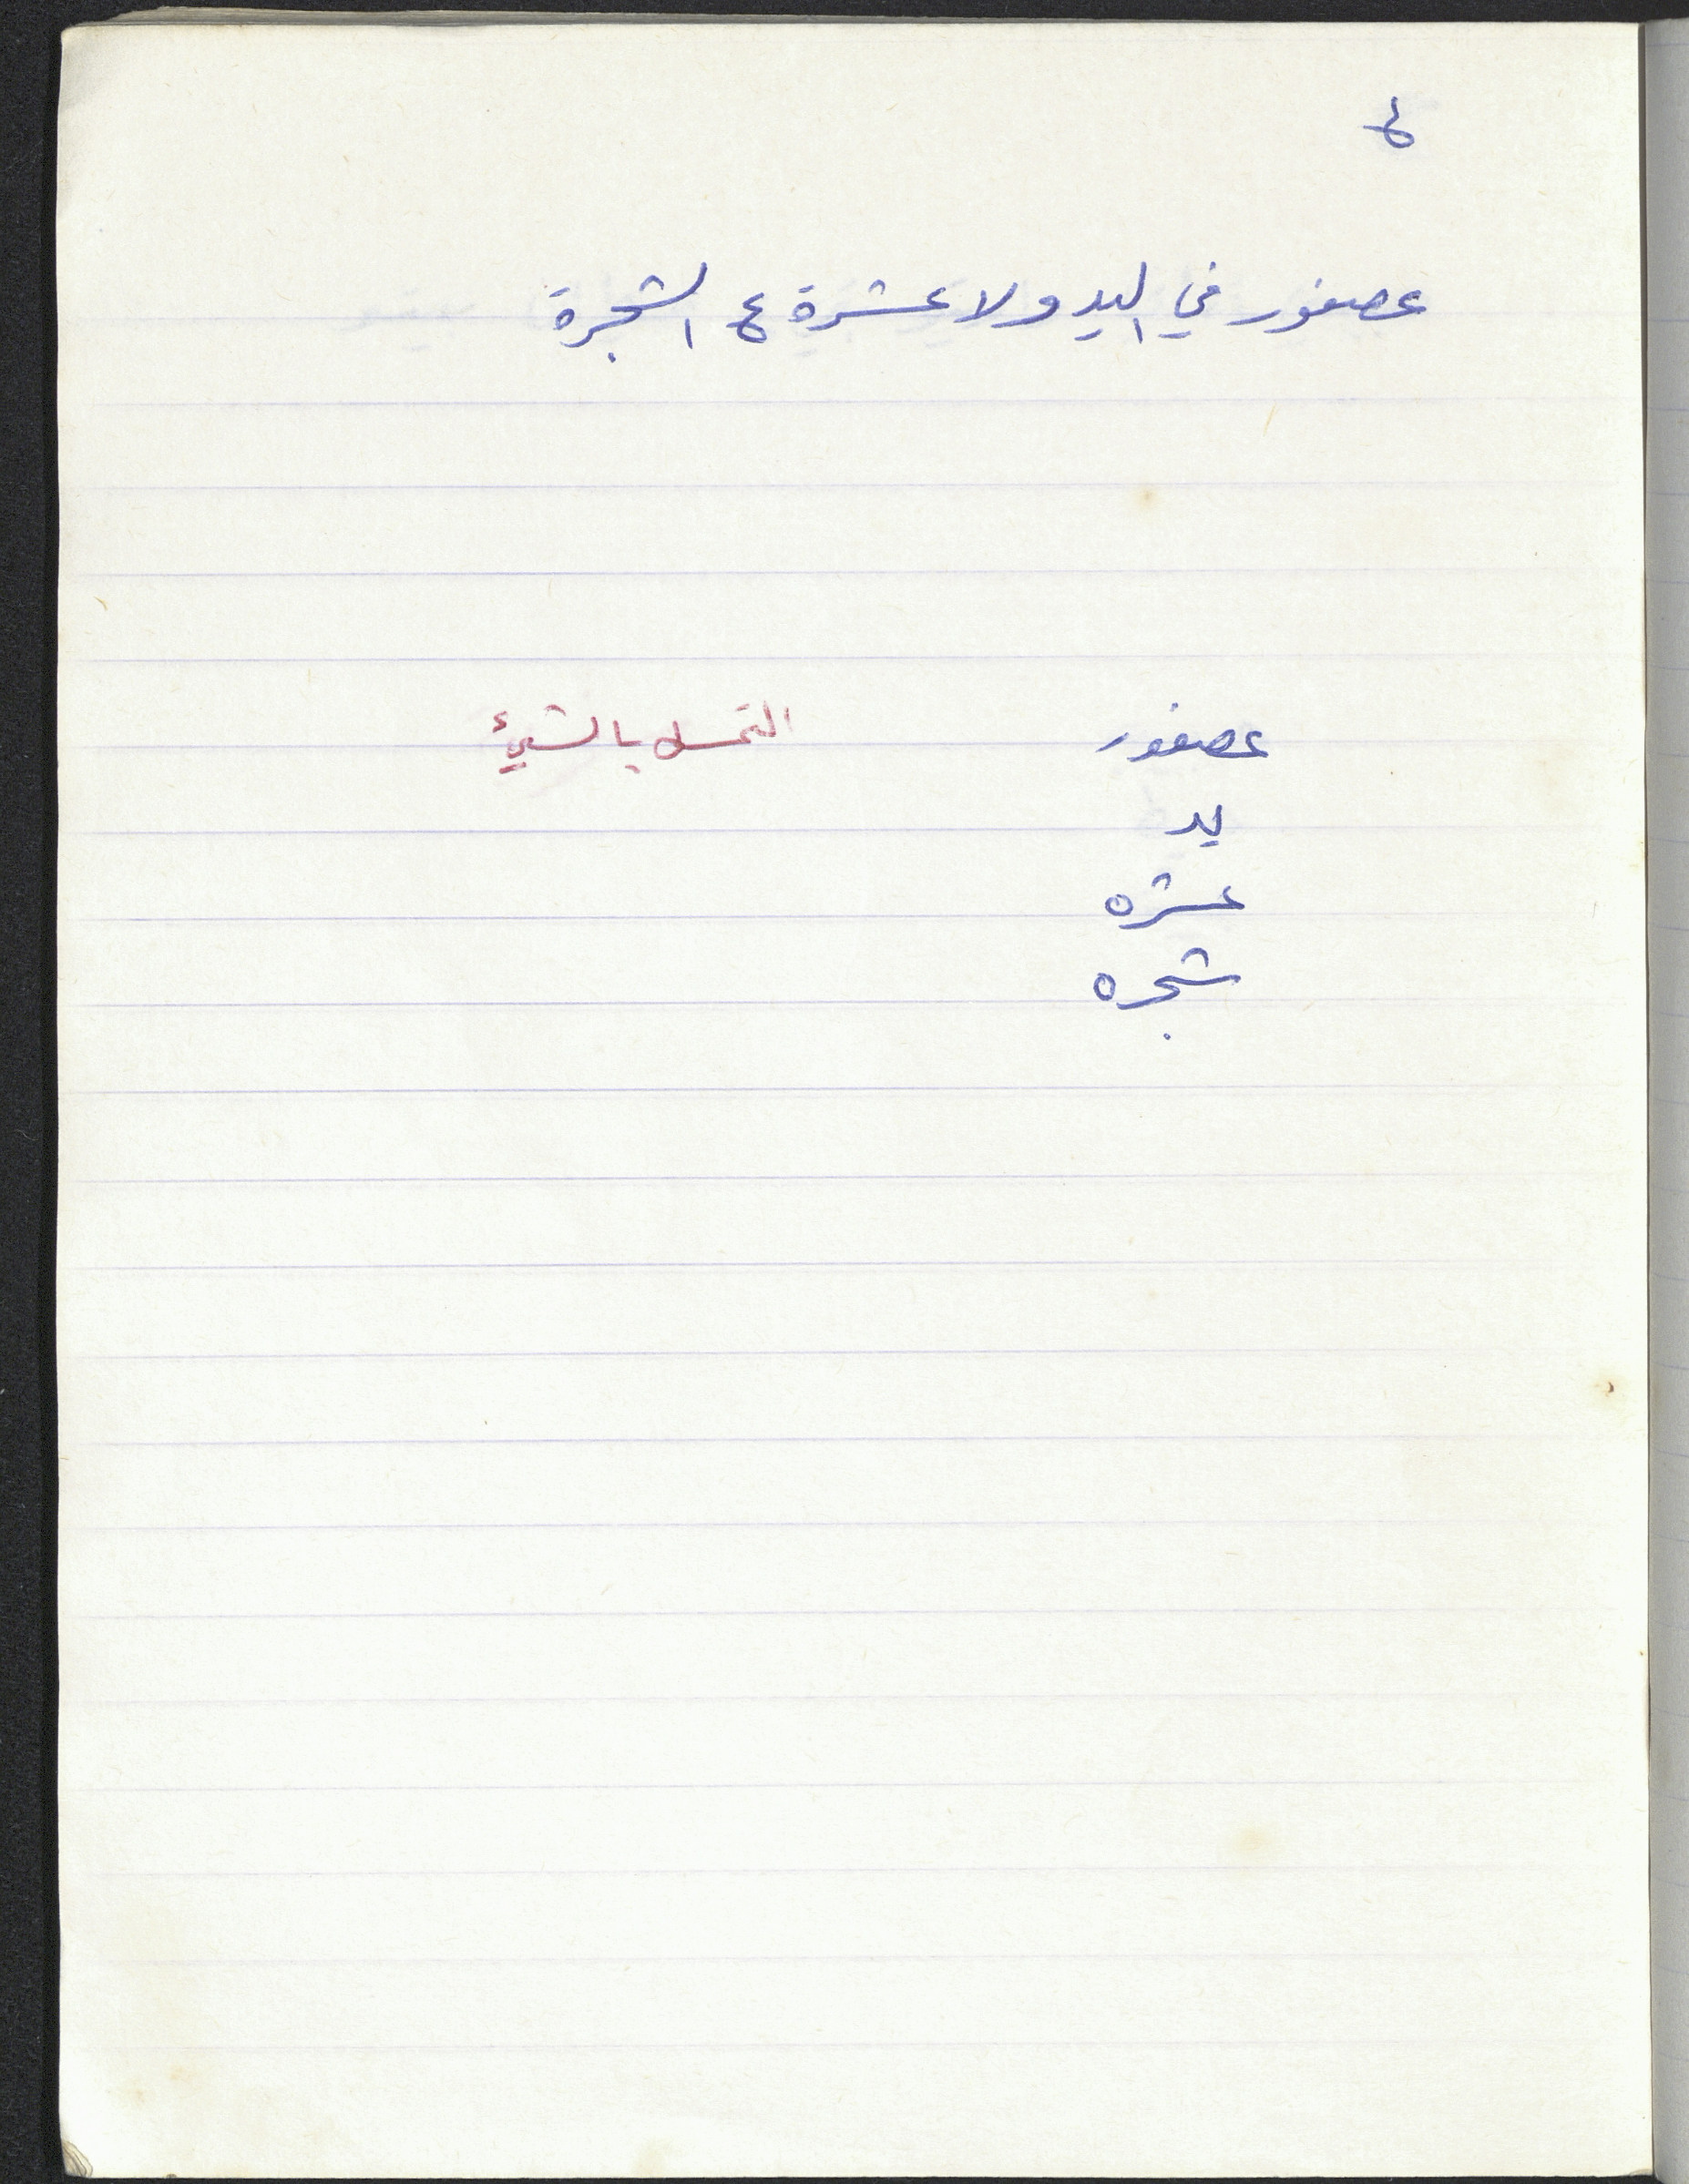 ط
عصفور في اليد ولا عشرة ع الشجرة
عصفور
التمسك بالشيئ
يد
عشره
شجره